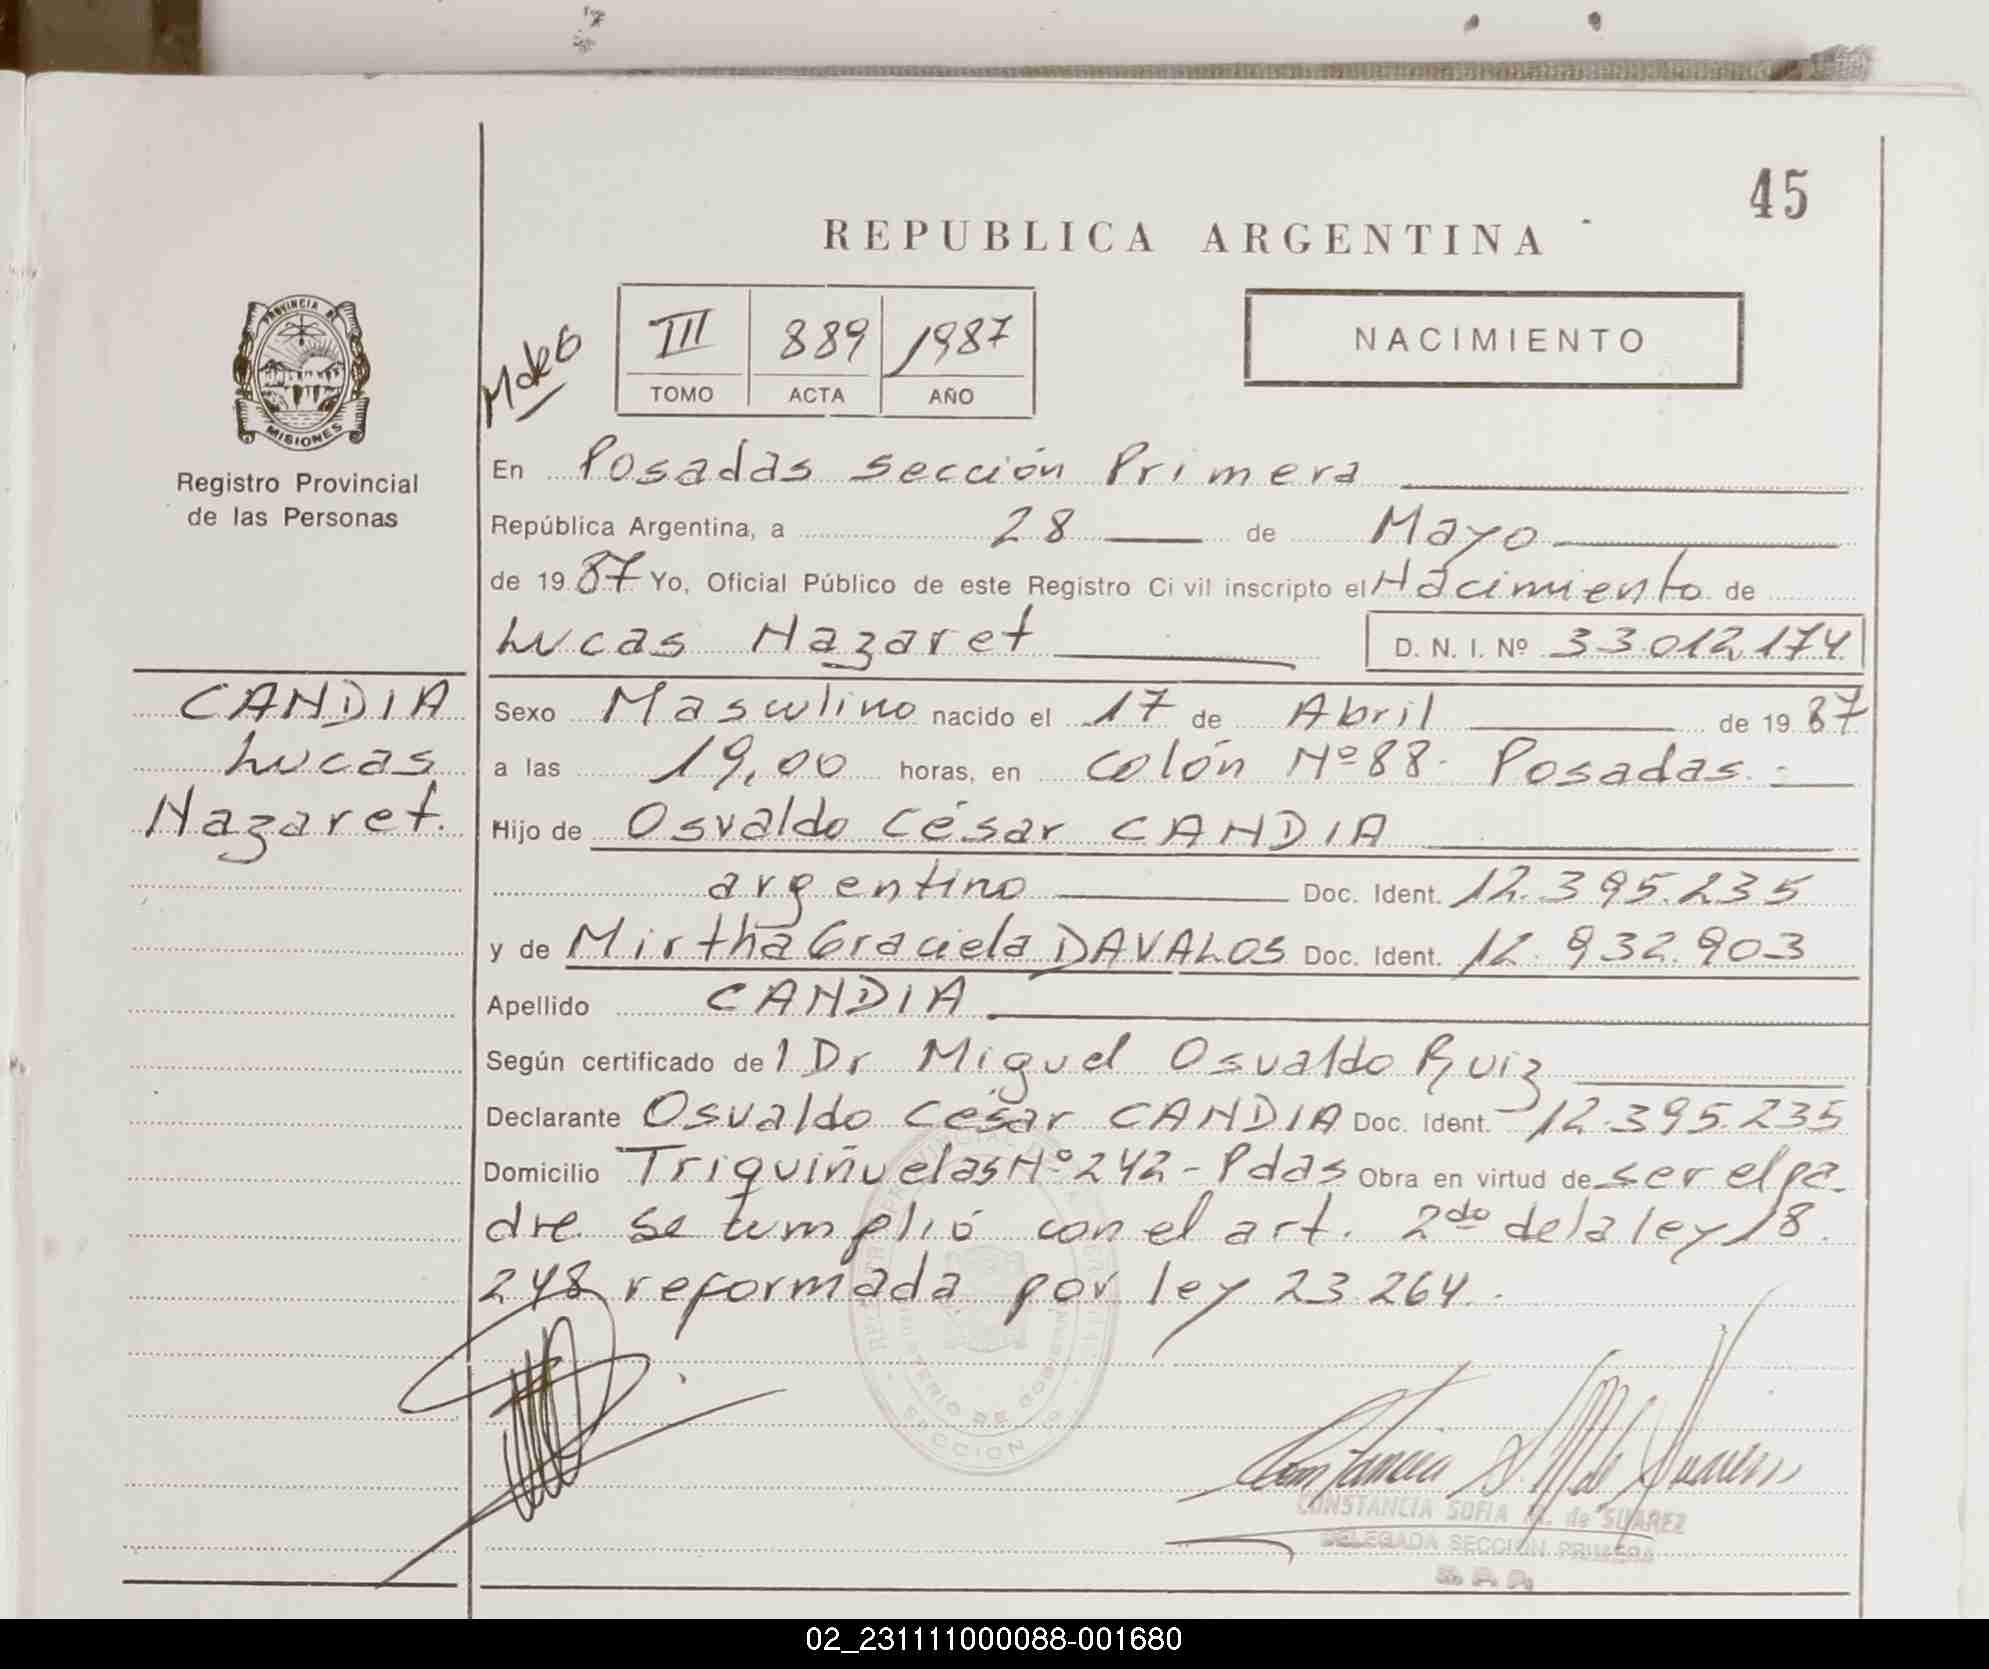 45
REPUBLICA ARGENTINA
III 889 1987
TOMO ACTA AÑO
NACIMIENTO
PROVINCIA DE
MISIONES
Registro Provincial
de las Personas
CANDIA
Lucas
Nazaret.
En Posadas sección Primera
República Argentina, a 28 de Mayo
de 1987 Yo, Oficial Público de este Registro Civil inscripto el Nacimiento de
Lucas Nazaret D. N. I. Nº 33.012.174
Sexo Masculino nacido el 17 de Abril de 1987
a las 19,00 horas, en Colón Nº 88. Posadas.-
Hijo de Osvaldo César CANDIA
argentino Doc. Ident. 12.395.235
y de Mirtha Graciela DAVALOS Doc. Ident. 12.932.903
Apellido CANDIA
Según certificado del Dr Miguel Osvaldo Ruiz
Declarante Osvaldo César CANDIA Doc. Ident. 12.395.235
Domicilio Triquiñuelas Nº 242 - Pdas Obra en virtud de ser el pa-
dre se cumplió con el art. 2do de la ley 18.
248 reformada por ley 23.264.-
CONSTANCIA SOFIA M. de SUAREZ
DELEGADA SECCIÓN PRIMERA
R. P. P.
02_231111000088-001680